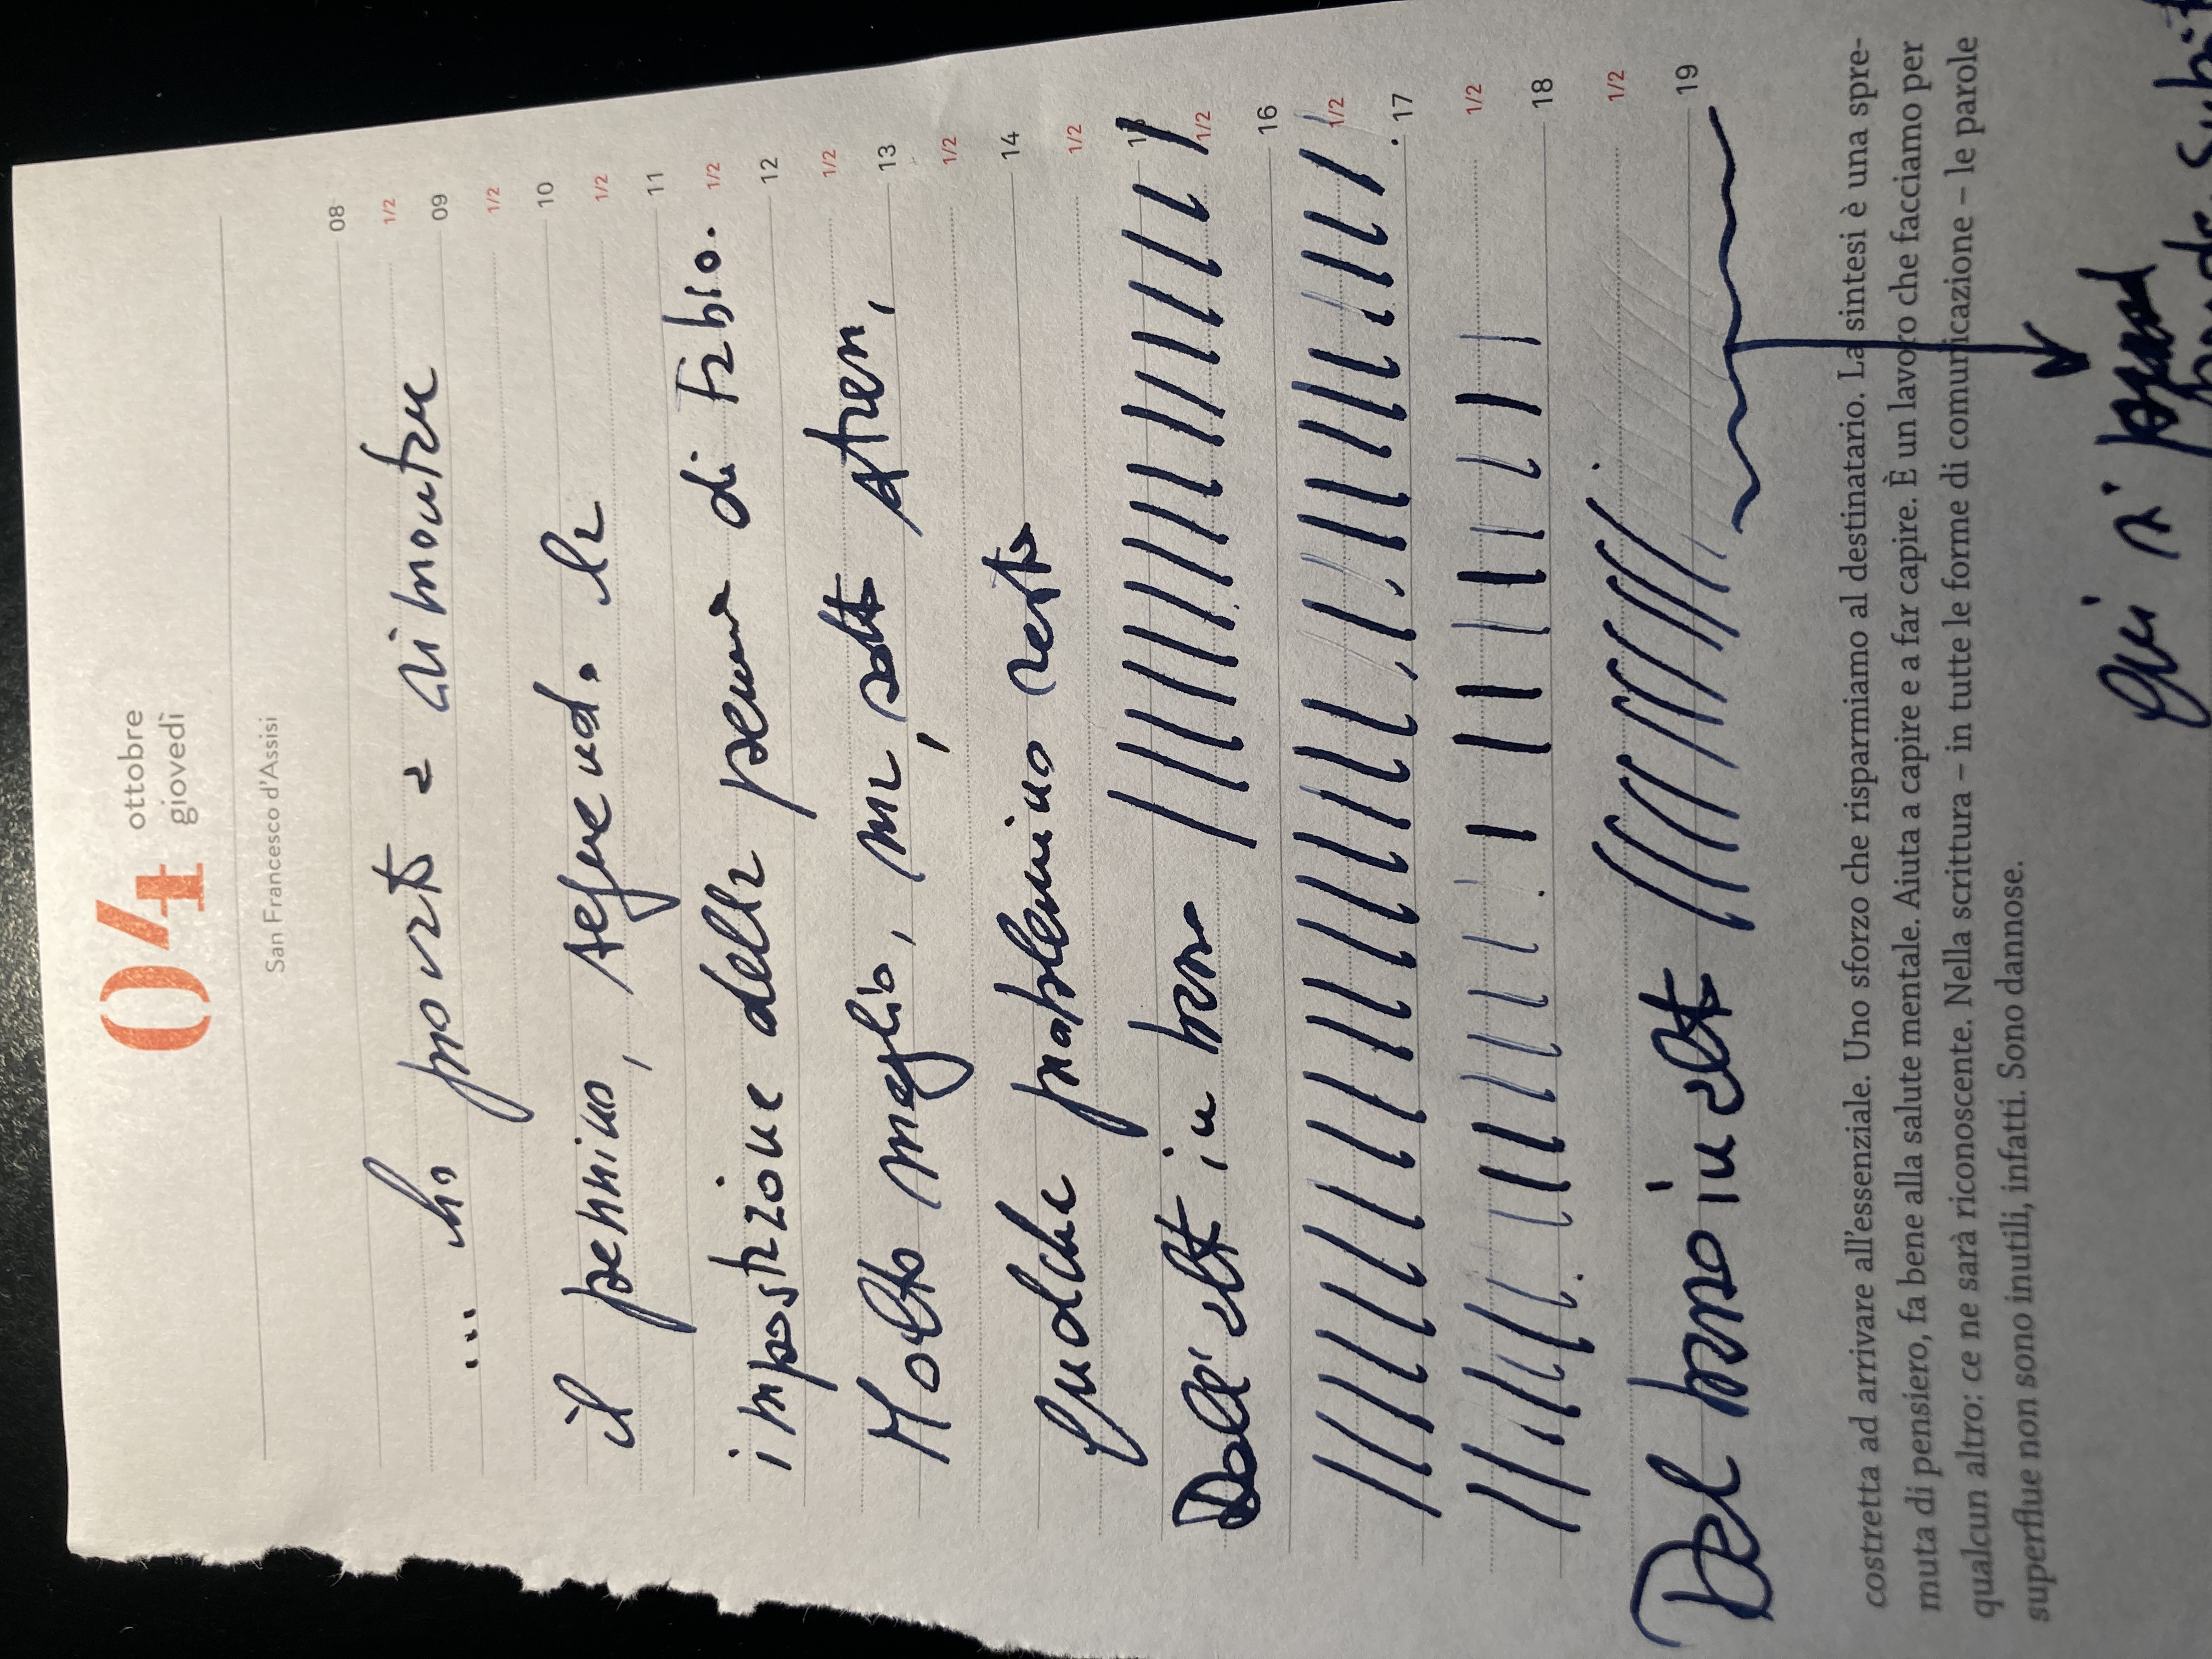 04
ottobre
giovedì
San Francesco d'Assisi
08
1/2
... ho provato a rimontare
09
1/2
10
il pennino, seguendo la
1/2
11
1/2
impostazione della penna di Fabio.
12
1/2
Molto meglio, ma, sotto stress,
13
1/2
14
qualche problemino resta
1/2
15
Dall'alto in basso
1/2
16
1/2
17
1/2
18
1/2
Del basso in alto
19
costretta ad arrivare all'essenziale. Uno sforzo che risparmiamo al destinatario. La sintesi è una spre-
muta di pensiero, fa bene alla salute mentale. Aiuta a capire e a far capire. È un lavoro che facciamo per
qualcun altro: ce ne sarà riconoscente. Nella scrittura – in tutte le forme di comunicazione – le parole
superflue non sono inutili, infatti. Sono dannose.
Qui si
subito